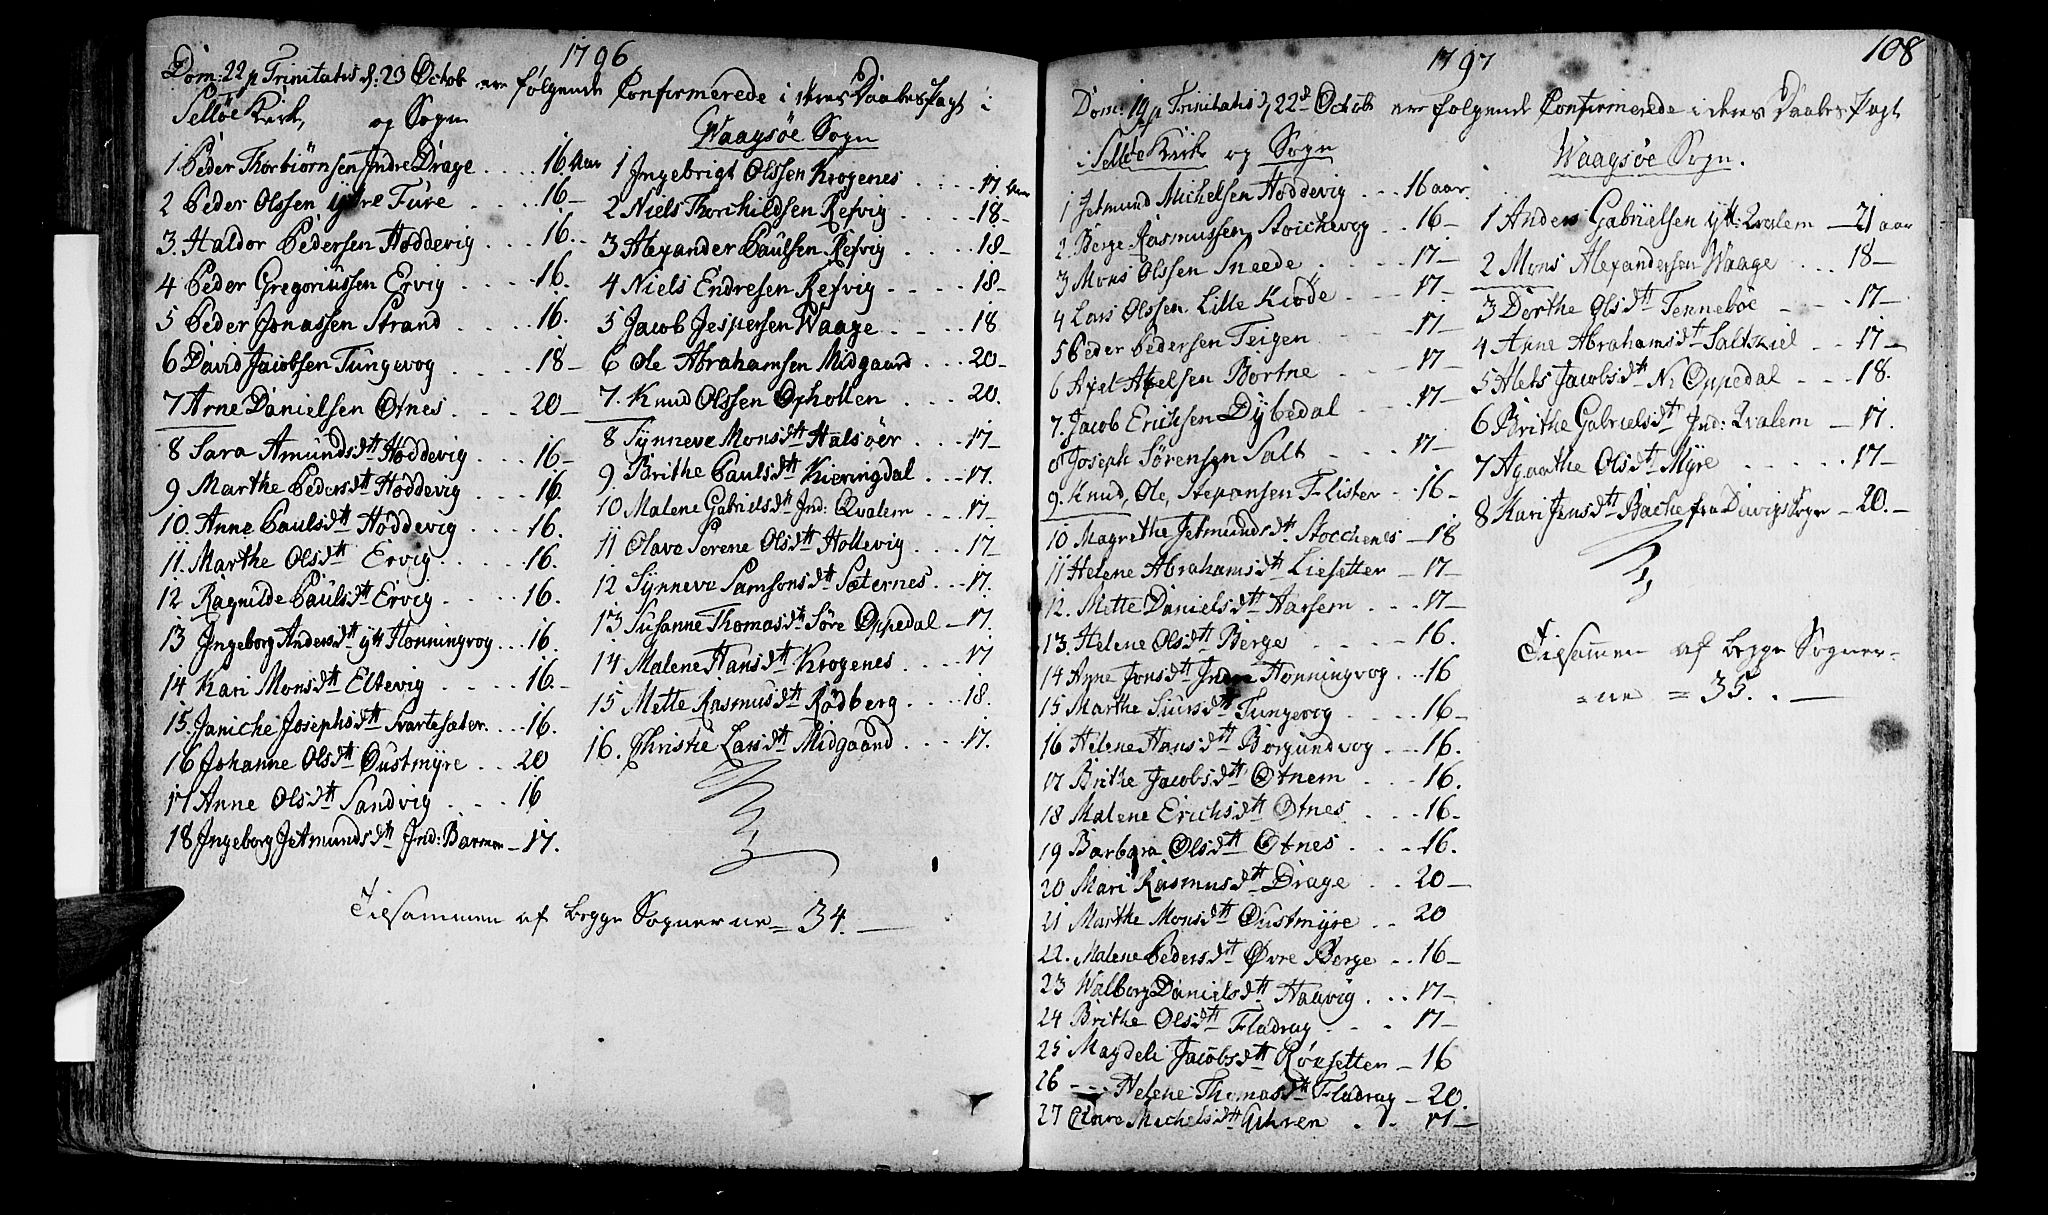 1796
Dom: 22 p Trinitatis d: 23 Octob ere følgende Confirmerede i deres Daabes Pagt i
Selløe Kirk, og Sogn
1 Peder Thorbiørnsen Indre Drage . . . . 16 Aar
2 Peder Olssen ytre Fure . . . . 16 –
3. Haldor Pedersen Hoddevig . . . 16. –
4 Peder Gregoriussen Ervig . . . . 16.
5 Peder Jonassen Strand . . . . 16.
6 David Jacobsen Tungevog . . . . 18 –
7 Arne Danielsen Otnes . . . . 20 –
8 Sara Amundsdtt Hoddevig . . . . 16 –
9 Marthe Pedersdtt Hoddevig . . . . 16
10. Anne Paulsdtt Hoddevig . . . 16.
11. Marthe Olsdtt Ervig . . . . 16.
12 Ragnilde Paulsdtt Ervig . . . . 16.
13 Ingeborg Andersdtt ytt Honningvog . . . 16.
14 Kari Monsdtt Eltevig . . . . 16. –
15. Janiche Josephsdtt Svartesæter . . . 16.
16 Johanne Olsdtt Oustmyre . . . 20
17 Anne Olsdtt Sandvig . . . 16
18 Ingeborg Jetmundsdtt Ind: Barmen – 17.
Waagsøe Sogn
1 Ingebrigt Olssen Krogenes . . . . 17. Aar
2 Niels Thorchildsen Refvig . . . . 18 –
3 Alexander Paulsen Refvig . . . . 18 –
4 Niels Endresen Refvig . . . . 18 –
5 Jacob Jespersen Waage . . . . 18
6 Ole Abrahamsen Midgaard . . . 20 –
7. Knud Olssen Ophollen . . . 20.
8 Synneve Monsdtt Halsøer . . . 17 –
9. Brithe Paulsdtt Kieringdal . . . 17.
10 Malene Gabrielsdtt Ind: Qvalem . . . 17 –
11 Olava Serene Olsdtt Hollevig . . . 17 –
12 Synneve Samsonsdtt Sæternes . . . 17.
13 Susanne Thomasdtt Søre Oppedal – 17.
14 Malene Hansdtt Krogenes . . . . 17
15 Mette Rasmusdtt Rødberg . . . . 18.
16. Christie Larsdtt Midgaard . . . . 17.
Tilsammen af begge Sognerne = 34. –
108
1797
Dom: 19 p Trinitatis d, 22d Octob ere følgende Confirmerede i deres Daabes Pagt
i Selløe Kirk og Sogn
1 Jetmund Michelsen Hoddevig . . . 16 aar
2. Berge Rasmussen Stoichevog . . 16 –
3 Mons Olssen Sneede . . . . 17 –
4 Lars Olssen Lille Kiøde . . . . 17 –
5 Peder Pedersen Teigen . . . . 17 –
6 Axel Axelsen Bortne . . . . 17
7. Jacob Erichsen Dybedal . . . 17 –
8 Joseph Sørensen Salt . . . . 17 –
9. Knud, Ole, Stepansen Flister . . 16 –
10 Magrethe Jetmundsdtt Stocchenes – 18
11 Helene Abrahamsdtt Liesetter – 17 –
12. Mette Danielsdtt Aarsem . . . 17 –
13. Helene Olsdtt Berge . . . . 16.
14 Anne Jonsdtt Indre Honningvog . . . 16
15 Marthe Siursdtt Tungevig . . . . 16 –
16 Helene Hansdtt Borgundvog . . . 16.
17 Brithe Jacobsdtt Otnem . . . 16.
18 Malene Erichsdtt Otnes . . . . 16 –
19 Barbara Olsdtt Otnes . . . – 16.
20 Mari Rasmusdtt Drage . . . 20 –
21 Marthe Monsdtt Oustmyre . . 20
22. Malene Pedersdtt Øvre Berge . . 16 –
23 Walborg Danielsdtt Haavig . . . 17 –
24 Brithe Olsdtt Fladrag . . . 17 –
25 Magdeli Jacobsdtt Rørsetter – 16
26 – . . . Helene Thomasdtt Fladrag – 20.
27 Olave Michelsdtt Gihren . . . 17 –
Waagsøe Sogn.
1 Anders Gabrielsen ytt: Qvalem – 21 aar
2 Mons Alexandersen Waage . . . 18 –
3 Dorthe Olsdtt Tenneboe – . . 17 –
4 Anne Abrahamsdtt Saltskiel . . 17 –
5 Alets Jacobsdtt N: Oppedal . . . 18.
6 Brithe Gabrielsdtt Ind: Qvalem – 17.
7 Agaathe Olsdtt Myre . . . . . 17 –
8 Kari Jensdtt Bache fra Davigs Sogn – 20. –
Tilsammen af begge Sogner-
=ne = 35. . –